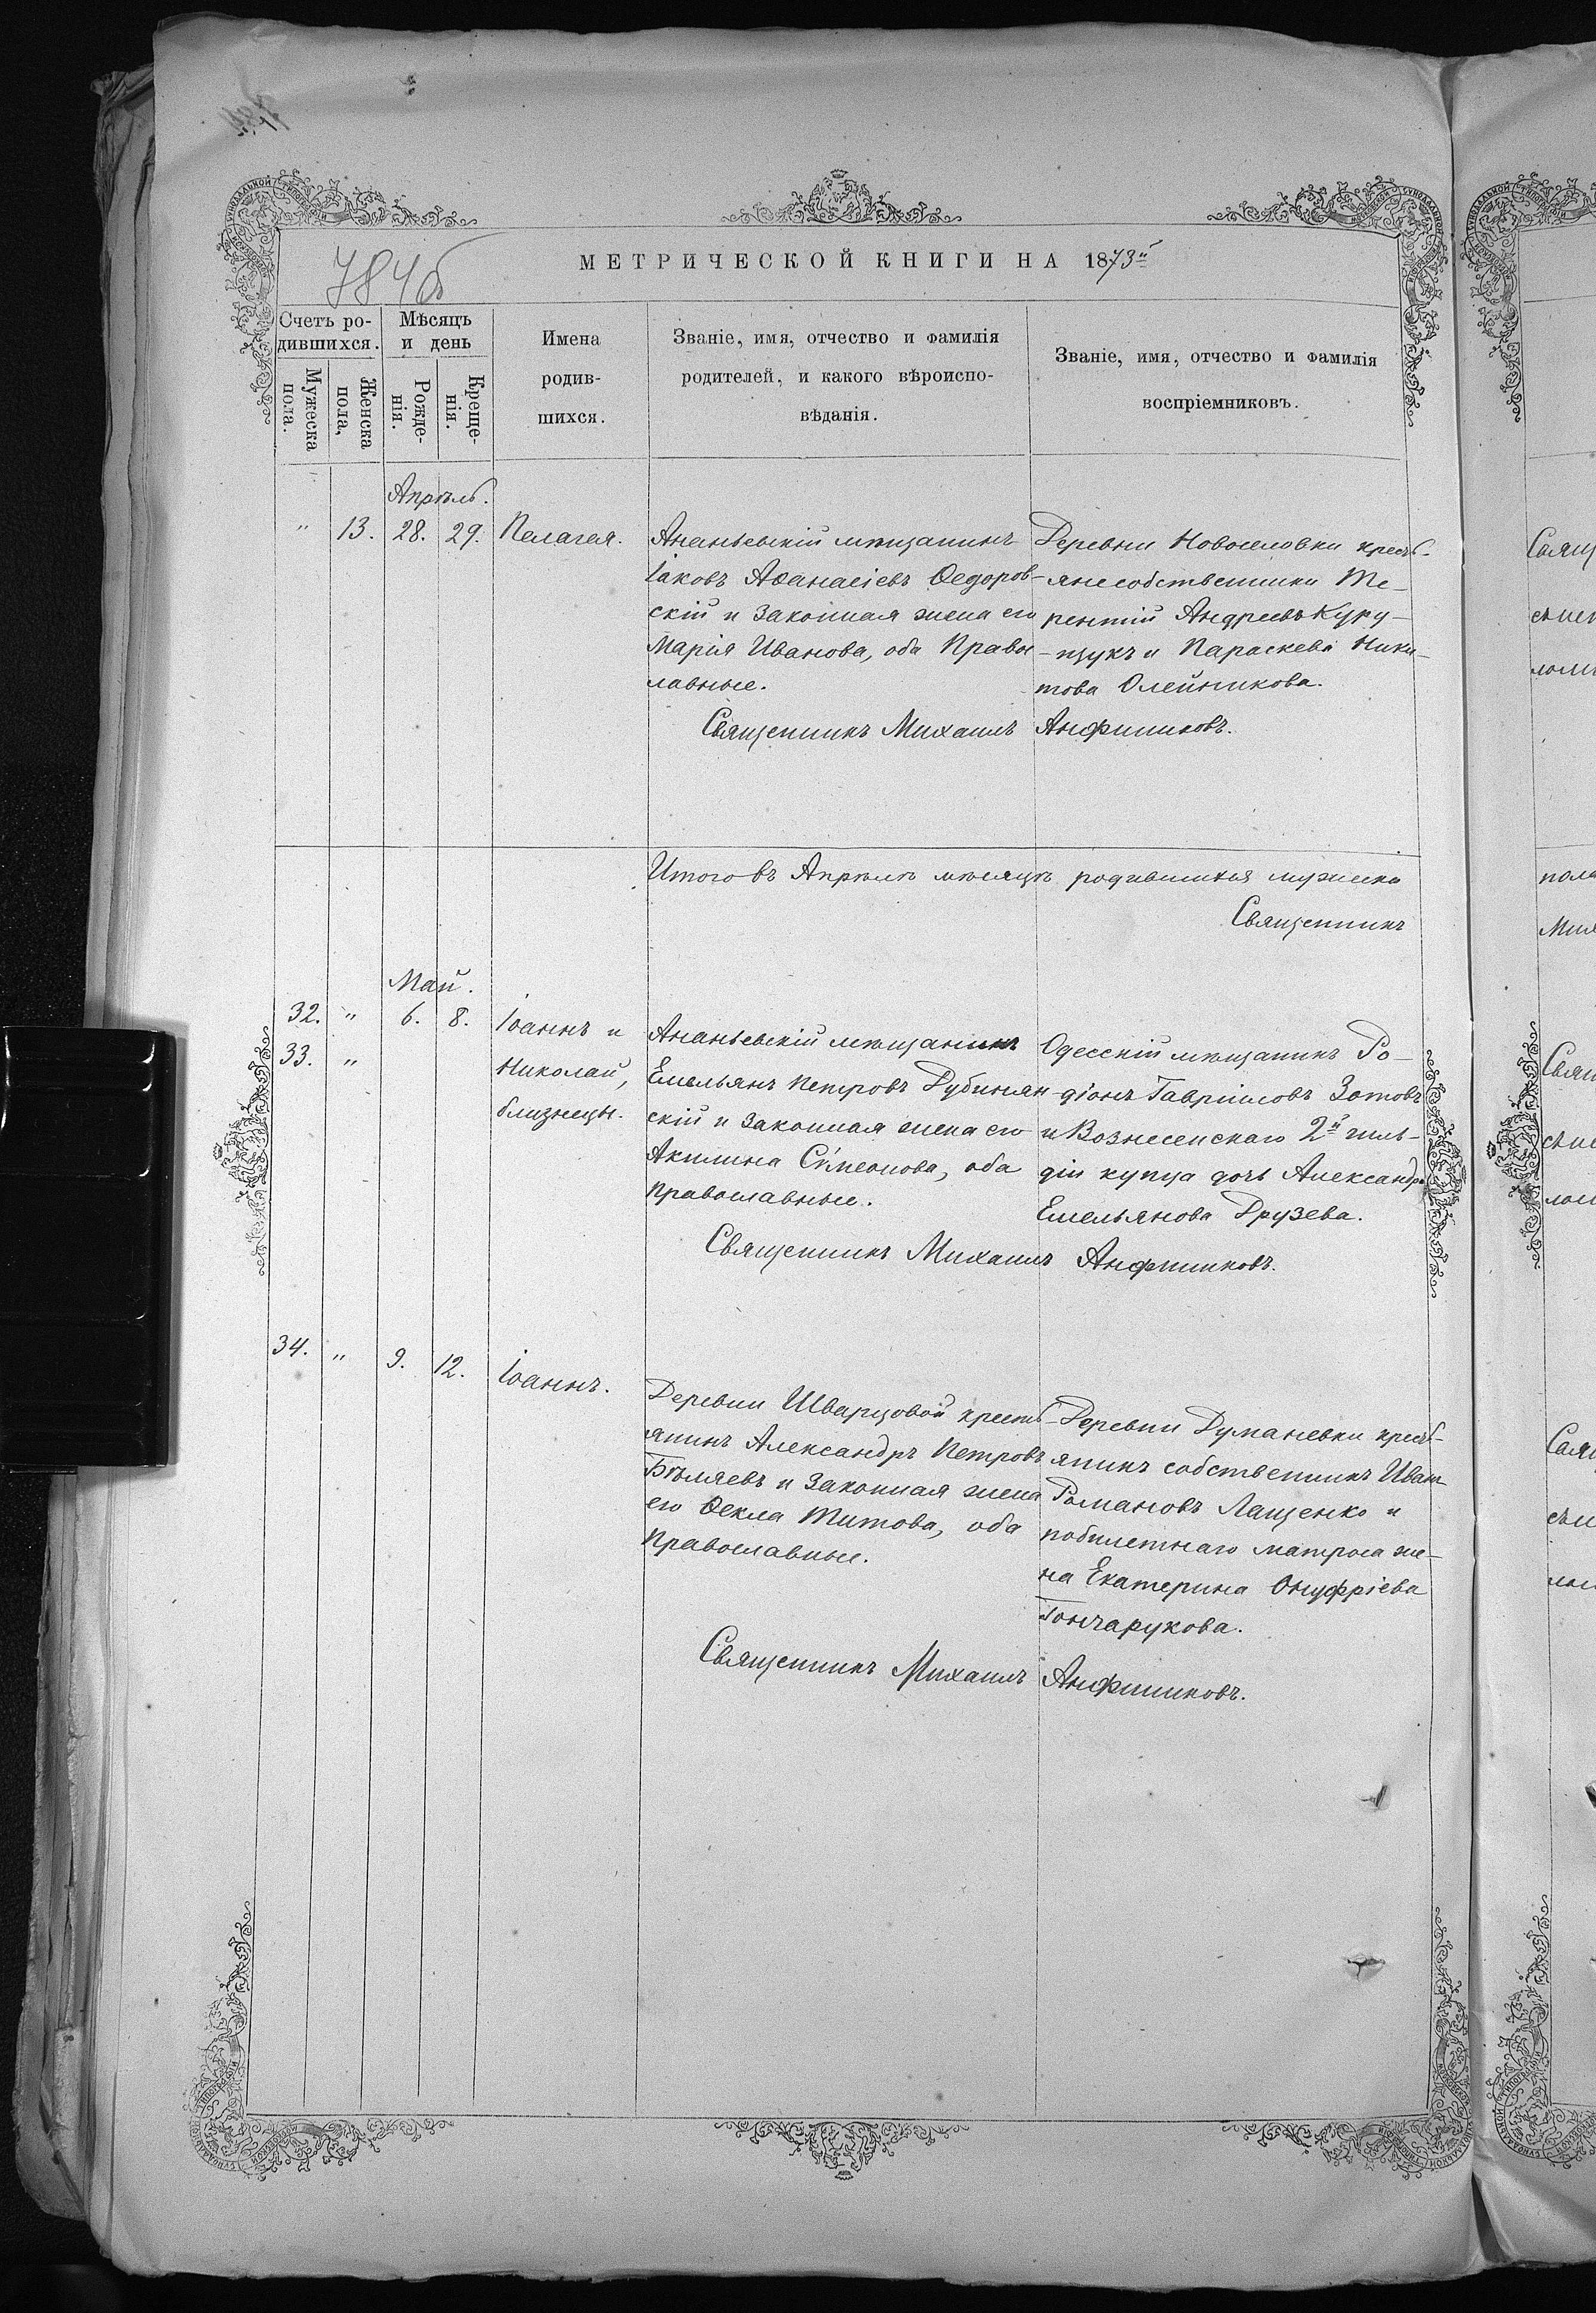 784б
МЕТРИЧЕСКОЙ КНИГИ НА 1873й
Счетъ ро-
дившихся.
Мѣсяцъ
и день
Мужеска
пола.
Женска
пола,
Рожде-
нія.
Креще-
нія.
Имена
родив-
шихся.
Званіе, имя, отчество и фамилія
родителей, и какого вѣроиспо-
вѣданія.
Званіе, имя, отчество и фамилія
воспріемниковъ.
Апрѣль.
" 13. 28. 29. Пелагея.
Ананьевскій мѣщанинъ
Іаковъ Аѳанасіевъ Ѳедоров-
скій и законная жена его
Марія Иванова, оба Право-
лавные.
Деревни Новоселовки кресть-
яне собственники Те-
рентій Андреевъ Куру-
-щукъ и Параскева Ники-
това Олейникова.
Священникъ Михаилъ Анфиников.
Итого въ Апрѣлѣ мѣсяцѣ родившихся мужеска
Священникъ
Май.
32. " 6. 8. Іоаннъ и
33. " Николай,
близнецы.
Ананьевскій мѣщанинъ
Емельянъ Петровъ Дубинян-
скій и законная жена его
Акилина Сѵмеонова, оба
православные.
Одесскій мѣщанинъ Ро-
-діонъ Гавриловъ Зотовъ
и Вознесенскаго 2й гиль-
діи купца дочь Александра
Емельянова Друзева.
Священникъ Михаилъ Анфиниковъ.
34. " 9. 12. Іоаннъ.
Деревни Шварцовой кресть-
янинъ Александръ Петровъ
Бѣляевъ и законная жена
его Ѳекла Титова, оба
православные.
Деревни Думаневки кресть-
янинъ собственникъ Иванъ
Романовъ Лащенко и
побилетнаго матроса же-
на Екатерина Онуфріева
Гончарукова.
Священникъ Михаилъ Анфиниковъ.